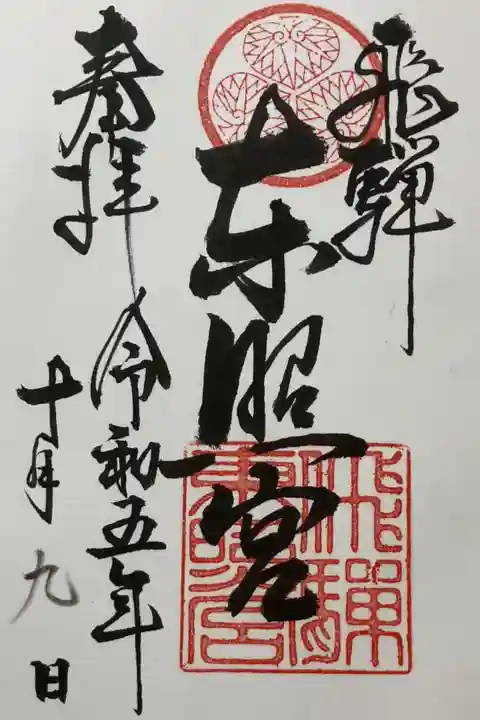 飛騨
東照宮
奉拝
令和五年
十月九日
飛騨
東照宮